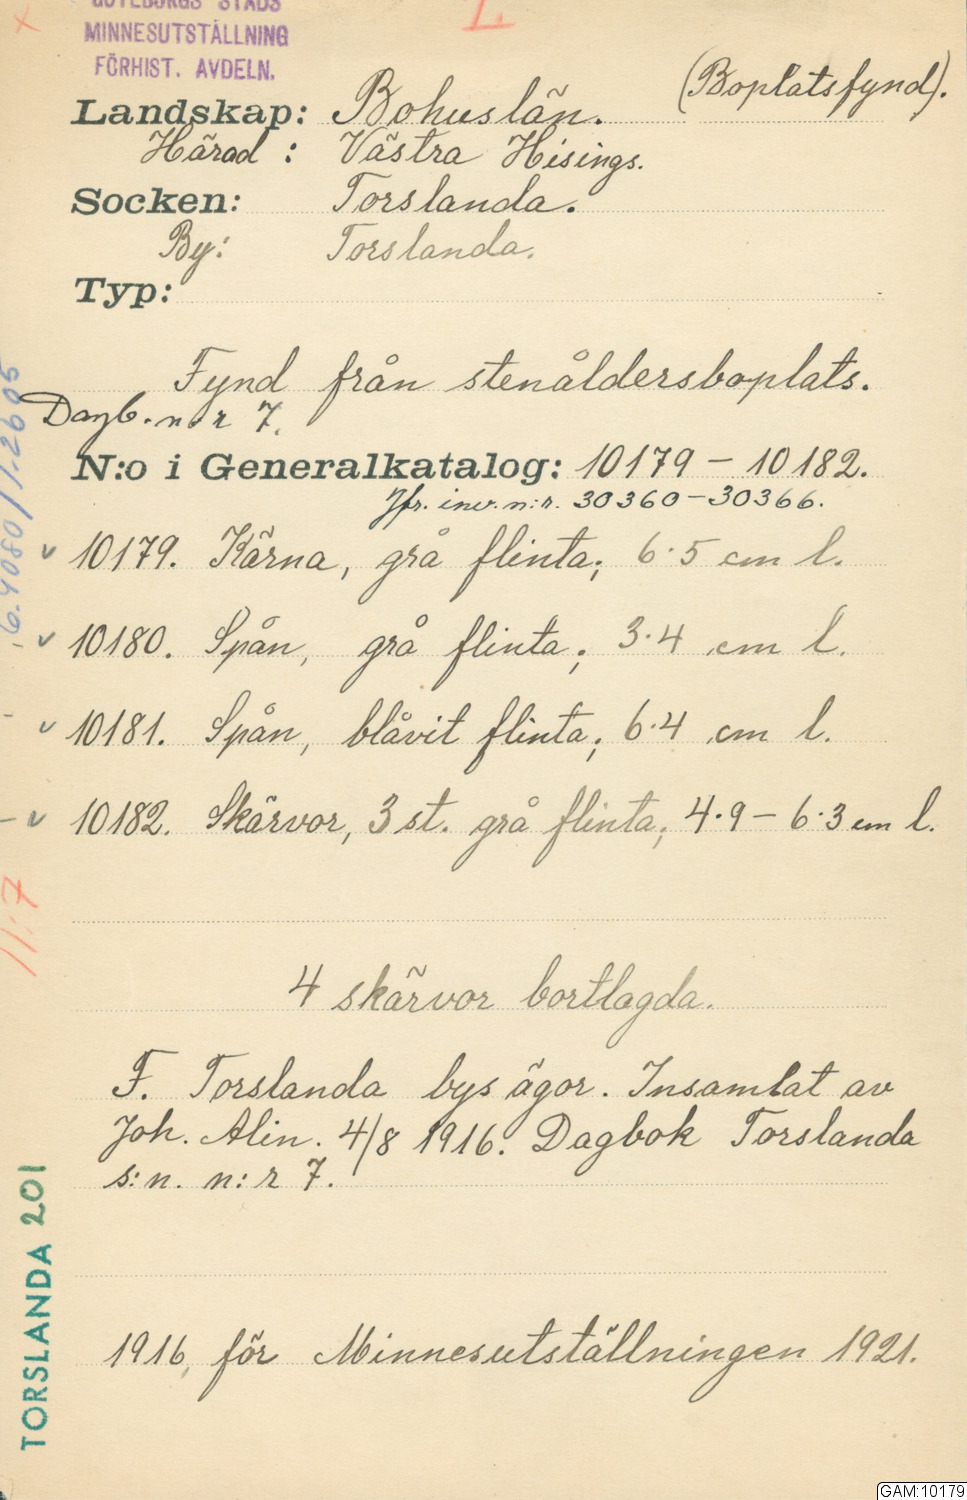 GÖTEBORGS STADS
MINNESUTSTÄLLNING
FÖRHIST. AVDELN.
(Boplatsfynd).
Landskap: Bohuslän.
Härad: Västra Hisings.
Socken: Torslanda.
By: Torslanda.
Typ:
Fynd från stenåldersboplats.
Dagb. n:r 7.
N:o i Generalkatalog: 10179 - 10182.
Jfr. inv. n:r. 30360-30366.
10179. Kärna, grå flinta; 6·5 cm l.
10180. Spån, grå flinta; 3·4 cm l.
10181. Spån, blåvit flinta; 6·4 cm l.
10182. Skärvor, 3 st. grå flinta; 4·9 - 6·3 cm l.
11:7
4 skärvor bortlagda.
F. Torslanda bys ägor. Insamlat av
Joh. Alin. 4/8 1916. Dagbok Torslanda
s:n. n:r 7.
1916, för Minnesutställningen 1921.
TORSLANDA 201
GAM:10179